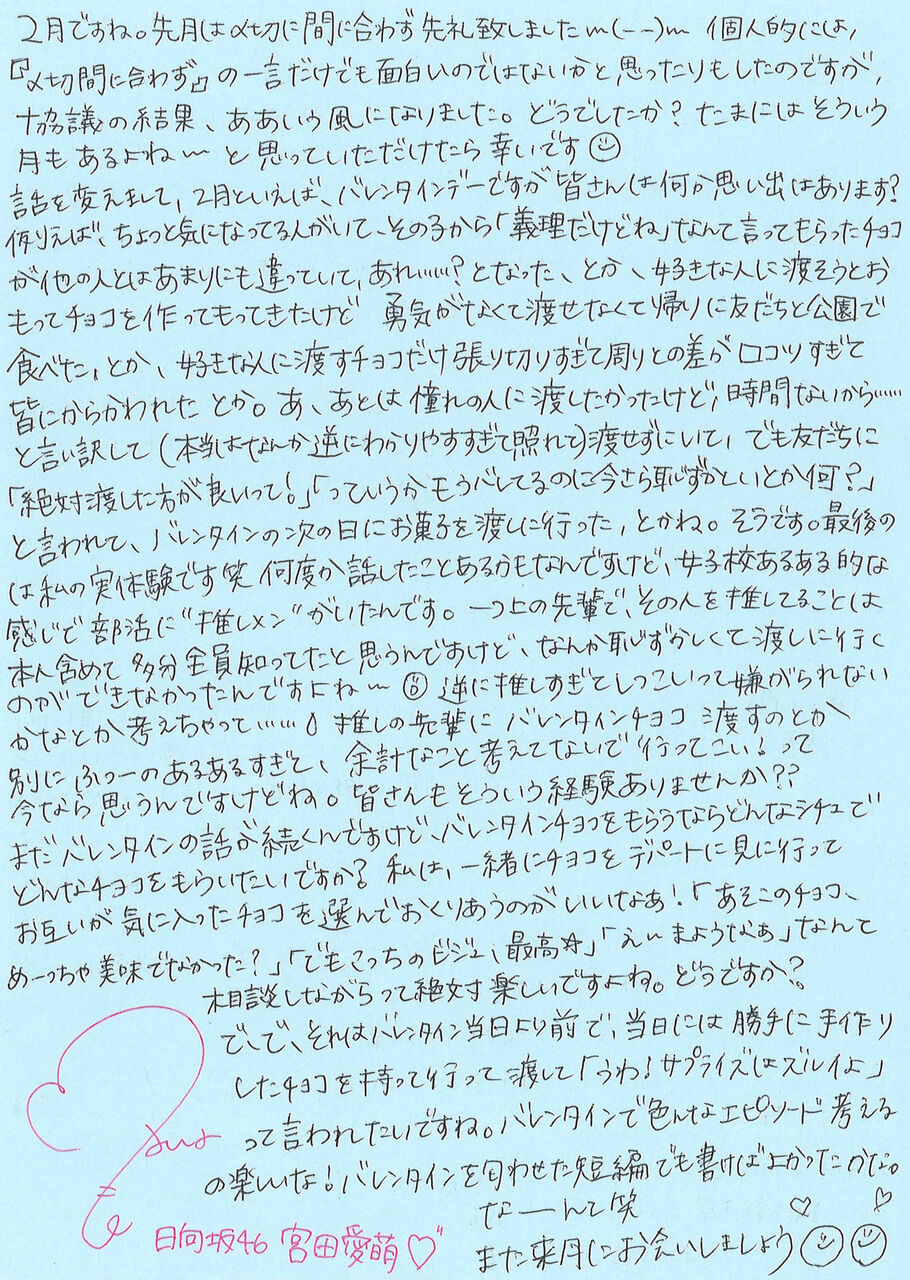 2月ですね。先月は〆切に間に合わず先礼致しましたm(--)m 個人的には、
『〆切間に合わず』の一言だけでも面白いのではないかと思ったりもしたのですが、
協議の結果、ああいう風になりました。どうでしたか?たまにはそういう
月もあるよね〜と思っていただけたら幸いです☺
話を変えまして、2月といえば、バレンタインデーですが皆さんは何か思い出はあります?
例えば、ちょっと気になってる人がいて、その子から「義理だけどね」なんて言ってもらったチョコ
が他の人とはあまりにも違っていて、あれ……?となった、とか、好きな人に渡そうとお
もってチョコを作ってもってきたけど 勇気がなくて渡せなくて帰りに友だちと公園で
食べた、とか、好きな人に渡すチョコだけ張り切りすぎて周りとの差がロコツすぎて
皆にからかわれたとか。あ、あとは憧れの人に渡したかったけど、時間ないから……
と言い訳して(本当はなんか逆にわかりやすすぎて照れて)渡せずにいて、でも友だちに
「絶対渡した方が良いって!」「っていうかもうバレてるのに今さら恥ずかしいとか何?」
と言われて、バレンタインの次の日にお菓子を渡しに行った、とかね。そうです。最後の
は私の実体験です笑 何度か話したことあるかもなんですけど、女子校あるある的な
感じで部活に"推しメン"がいたんです。一つ上の先輩で、その人を推してることは
本人含めて多分全員知ってたと思うんですけど、なんか恥ずかしくて渡しに行く
のができなかったんですよね〜 逆に推しすぎてしつこいって嫌がられない
かなとか考えちゃって…… 推しの先輩にバレンタインチョコ渡すのとか
別にふつーのあるあるすぎて、余計なこと考えてないで行ってこい!って
今なら思うんですけどね。皆さんもそういう経験ありませんか??
まだバレンタインの話が続くんですけど、バレンタインチョコをもらうならどんなシチュで
どんなチョコをもらいたいですか?私は、一緒にチョコをデパートに見に行って
お互いが気に入ったチョコを選んでおくりあうのがいいなぁ!「あそこのチョコ、
めーっちゃ美味でなかった?」「でもこっちのビジュ、最高☆」「え〜まようなぁ」なんて
相談しながらって絶対楽しいですよね。どうですか?
で、で、それはバレンタイン当日より前で、当日には勝手に手作り
したチョコを持って行って渡して「うわ!サプライズはズルイよ」
って言われたいですね。バレンタインで色んなエピソード考える
の楽しいな!バレンタインを匂わせた短編でも書けばよかったかな。
なーんて笑
また来月にお会いしましょう♡☺♡☺
日向坂46 宮田愛萌♡